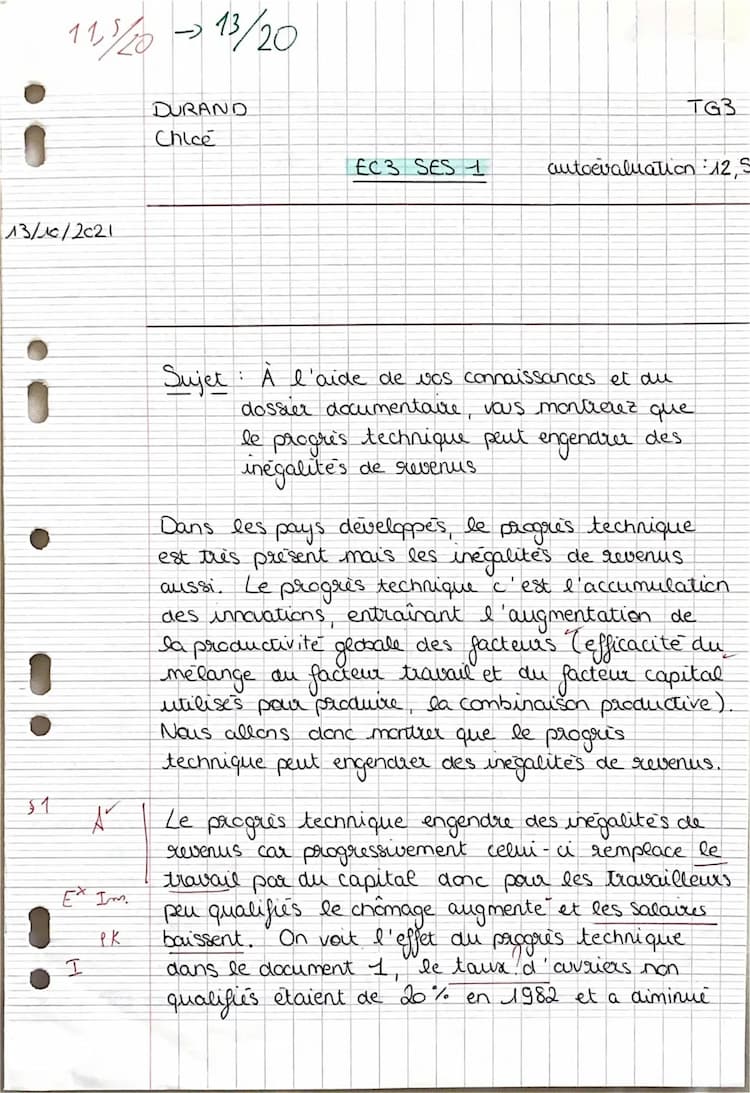 11,5/20 → 13/20
DURAND TG3
Chloé
EC3 SES 1 autoévaluation : 12,5
13/10/2021
Sujet : À l'aide de vos connaissances et du
dossier documentaire, vous montrerez que
le progrès technique peut engendrer des
inégalités de revenus
Dans les pays développés, le progrès technique
est très présent mais les inégalités de revenus
aussi. Le progrès technique c'est l'accumulation
des innovations, entraînant l'augmentation de
la productivité globale des facteurs (efficacité du
mélange du facteur travail et du facteur capital
utilisés pour produire, la combinaison productive).
Nous allons donc montrer que le progrès
technique peut engendrer des inégalités de revenus.
§1 A Le progrès technique engendre des inégalités de
revenus car progressivement celui-ci remplace le
travail par du capital donc pour les travailleurs
Ex Im. peu qualifiés le chômage augmente et les salaires
PK baissent. On voit l'effet du progrès technique
I dans le document 1, le taux ? d'ouvriers non
qualifiés étaient de 20% en 1982 et a diminué